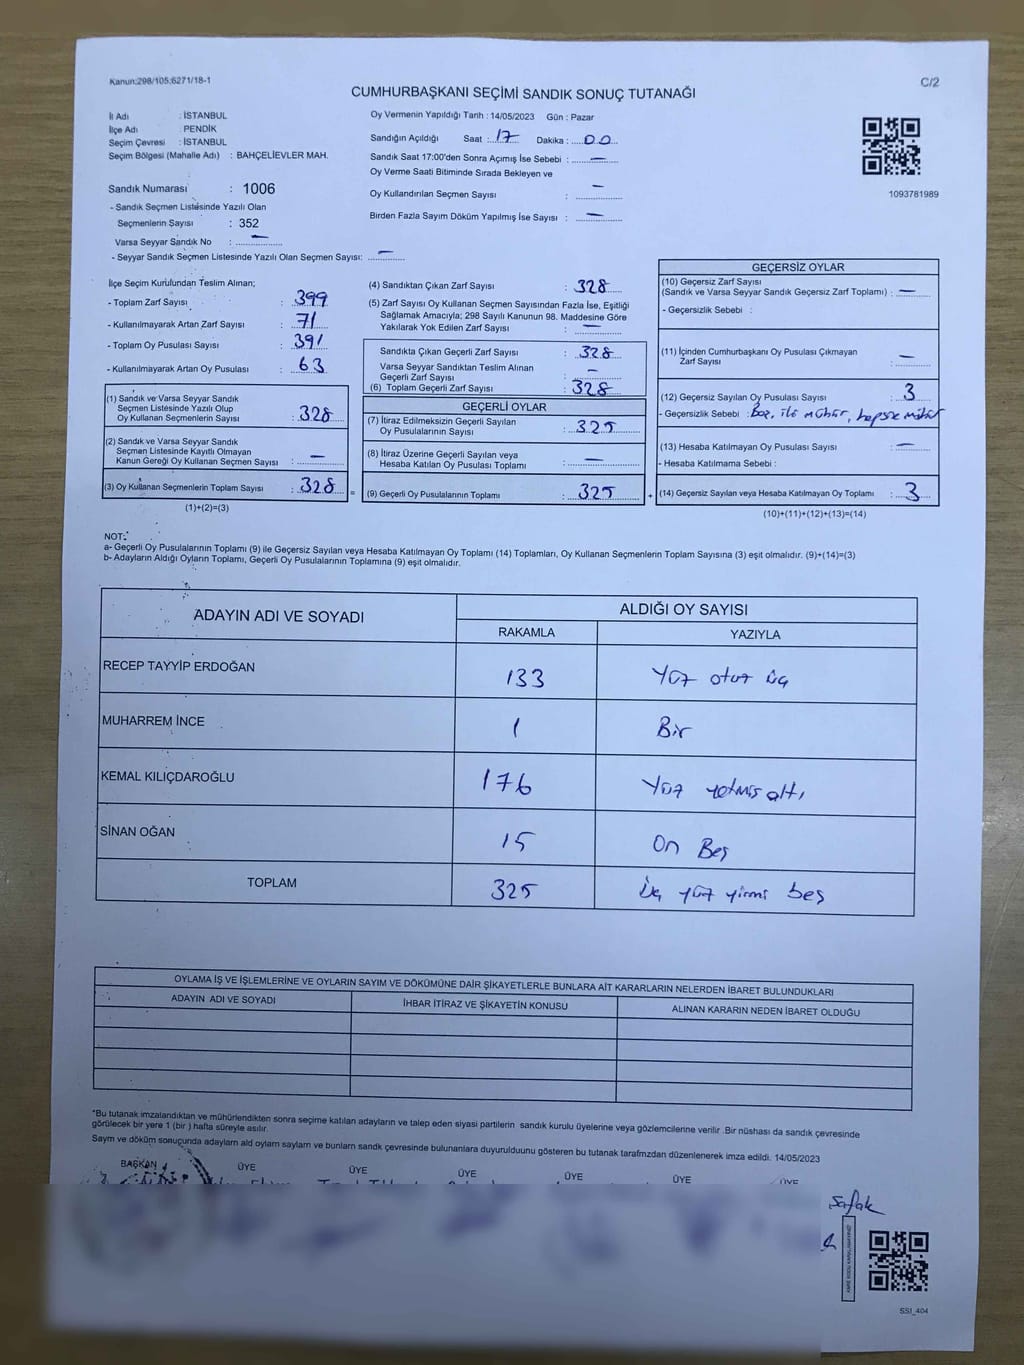 Kanun:298/105;6271/18-1
C/2
CUMHURBAŞKANI SEÇİMİ SANDIK SONUÇ TUTANAĞI
İl Adı : İSTANBUL
İlçe Adı : PENDİK
Seçim Çevresi : İSTANBUL
Seçim Bölgesi (Mahalle Adı) : BAHÇELİEVLER MAH.
Oy Vermenin Yapıldığı Tarih : 14/05/2023 Gün : Pazar
Sandığın Açıldığı Saat : 17 Dakika : 00
Sandık Saat 17:00'den Sonra Açımış İse Sebebi : —
Oy Verme Saati Bitiminde Sırada Bekleyen ve
Oy Kullandırılan Seçmen Sayısı : —
Birden Fazla Sayım Döküm Yapılmış İse Sayısı : —
1093781989
Sandık Numarası : 1006
- Sandık Seçmen Listesinde Yazılı Olan
Seçmenlerin Sayısı : 352
Varsa Seyyar Sandık No : —
- Seyyar Sandık Seçmen Listesinde Yazılı Olan Seçmen Sayısı: —
İlçe Seçim Kurulundan Teslim Alınan;
- Toplam Zarf Sayısı : 399
- Kullanılmayarak Artan Zarf Sayısı : 71
- Toplam Oy Pusulası Sayısı : 391
- Kullanılmayarak Artan Oy Pusulası : 63
(1) Sandık ve Varsa Seyyar Sandık
Seçmen Listesinde Yazılı Olup
Oy Kullanan Seçmenlerin Sayısı : 328
(2) Sandık ve Varsa Seyyar Sandık
Seçmen Listesinde Kayıtlı Olmayan
Kanun Gereği Oy Kullanan Seçmen Sayısı : —
(3) Oy Kullanan Seçmenlerin Toplam Sayısı : 328 =
(1)+(2)=(3)
(4) Sandıktan Çıkan Zarf Sayısı : 328
(5) Zarf Sayısı Oy Kullanan Seçmen Sayısından Fazla İse, Eşitliği
Sağlamak Amacıyla; 298 Sayılı Kanunun 98. Maddesine Göre
Yakılarak Yok Edilen Zarf Sayısı : —
Sandıkta Çıkan Geçerli Zarf Sayısı : 328
Varsa Seyyar Sandıktan Teslim Alınan
Geçerli Zarf Sayısı : —
(6) Toplam Geçerli Zarf Sayısı : 328
GEÇERLİ OYLAR
(7) İtiraz Edilmeksizin Geçerli Sayılan
Oy Pusulalarının Sayısı : 325
(8) İtiraz Üzerine Geçerli Sayılan veya
Hesaba Katılan Oy Pusulası Toplamı : —
(9) Geçerli Oy Pusulalarının Toplamı : 325 +
GEÇERSİZ OYLAR
(10) Geçersiz Zarf Sayısı
(Sandık ve Varsa Seyyar Sandık Geçersiz Zarf Toplamı) : —
- Geçersizlik Sebebi :
(11) İçinden Cumhurbaşkanı Oy Pusulası Çıkmayan
Zarf Sayısı : —
(12) Geçersiz Sayılan Oy Pusulası Sayısı : 3
- Geçersizlik Sebebi : mühür,
(13) Hesaba Katılmayan Oy Pusulası Sayısı : —
- Hesaba Katılmama Sebebi :
(14) Geçersiz Sayılan veya Hesaba Katılmayan Oy Toplamı : 3
(10)+(11)+(12)+(13)=(14)
NOT:
a- Geçerli Oy Pusulalarının Toplamı (9) ile Geçersiz Sayılan veya Hesaba Katılmayan Oy Toplamı (14) Toplamları, Oy Kullanan Seçmenlerin Toplam Sayısına (3) eşit olmalıdır. (9)+(14)=(3)
b- Adayların Aldığı Oyların Toplamı, Geçerli Oy Pusulalarının Toplamına (9) eşit olmalıdır.
ADAYIN ADI VE SOYADI
ALDIĞI OY SAYISI
RAKAMLA YAZIYLA
RECEP TAYYİP ERDOĞAN 133 Yüz otuz üç
MUHARREM İNCE 1 Bir
KEMAL KILIÇDAROĞLU 176 Yüz yetmiş altı
SİNAN OĞAN 15 On Beş
TOPLAM 325 Üç yüz yirmi beş
OYLAMA İŞ VE İŞLEMLERİNE VE OYLARIN SAYIM VE DÖKÜMÜNE DAİR ŞİKAYETLERLE BUNLARA AİT KARARLARIN NELERDEN İBARET BULUNDUKLARI
ADAYIN ADI VE SOYADI İHBAR İTİRAZ VE ŞİKAYETİN KONUSU ALINAN KARARIN NEDEN İBARET OLDUĞU
*Bu tutanak imzalandıktan ve mühürlendikten sonra seçime katılan adayların ve talep eden siyasi partilerin sandık kurulu üyelerine veya gözlemcilerine verilir .Bir nüshası da sandık çevresinde
görülecek bir yere 1 (bir ) hafta süreyle asılır.
Sayım ve döküm sonuçunda adayların ald oyların sayların ve bunların sandk çevresinde bulunanlara duyurulduunu gösteren bu tutanak tarafmzdan düzenlenerek imza edildi. 14/05/2023
BAŞKAN ÜYE ÜYE ÜYE ÜYE ÜYE ÜYE
Şafak
SSI_404